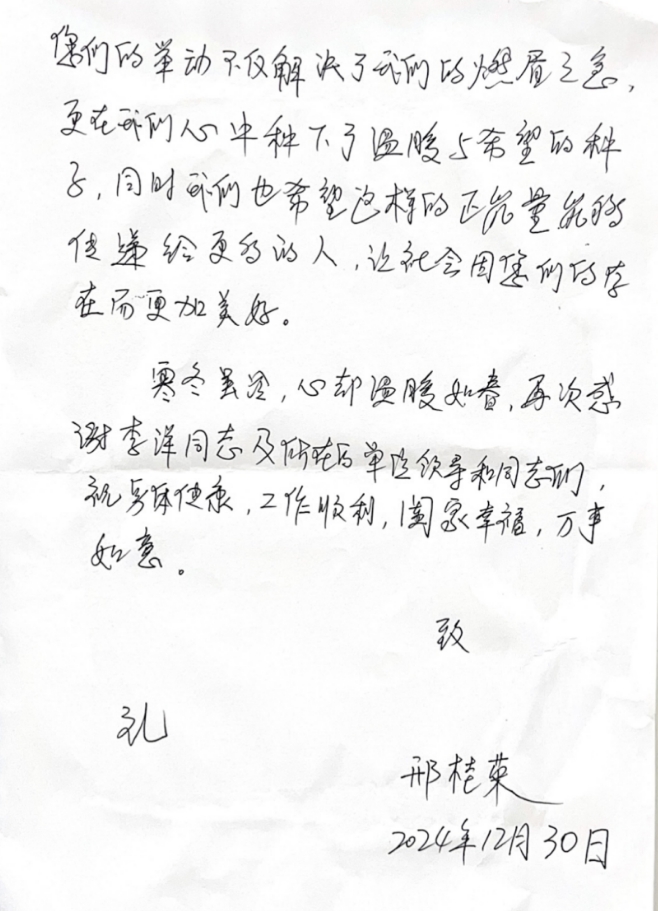 您们的举动不仅解决了我们的燃眉之急，
更在我们心中种下了温暖与希望的种
子，同时我们也希望这样的正能量能够
传递给更多的人，让社会因您们的存
在而更加美好。
寒冬虽冷，心却温暖如春，再次感
谢李洋同志及所在的单位领导和同志们，
祝身体健康，工作顺利，阖家幸福，万事
如意。
致
礼
邢桂英
2024年12月30日